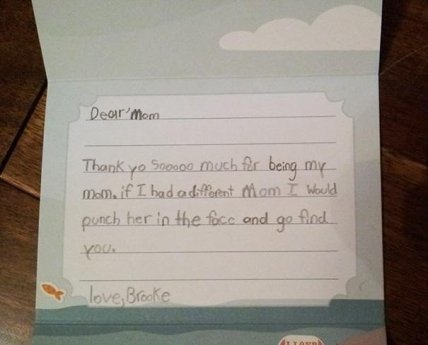 Dear Mom
Thank yo Sooooo much for being my
mom. if I had a different Mom I would
punch her in the face and go find
you.
love, Brooke
I LOVE